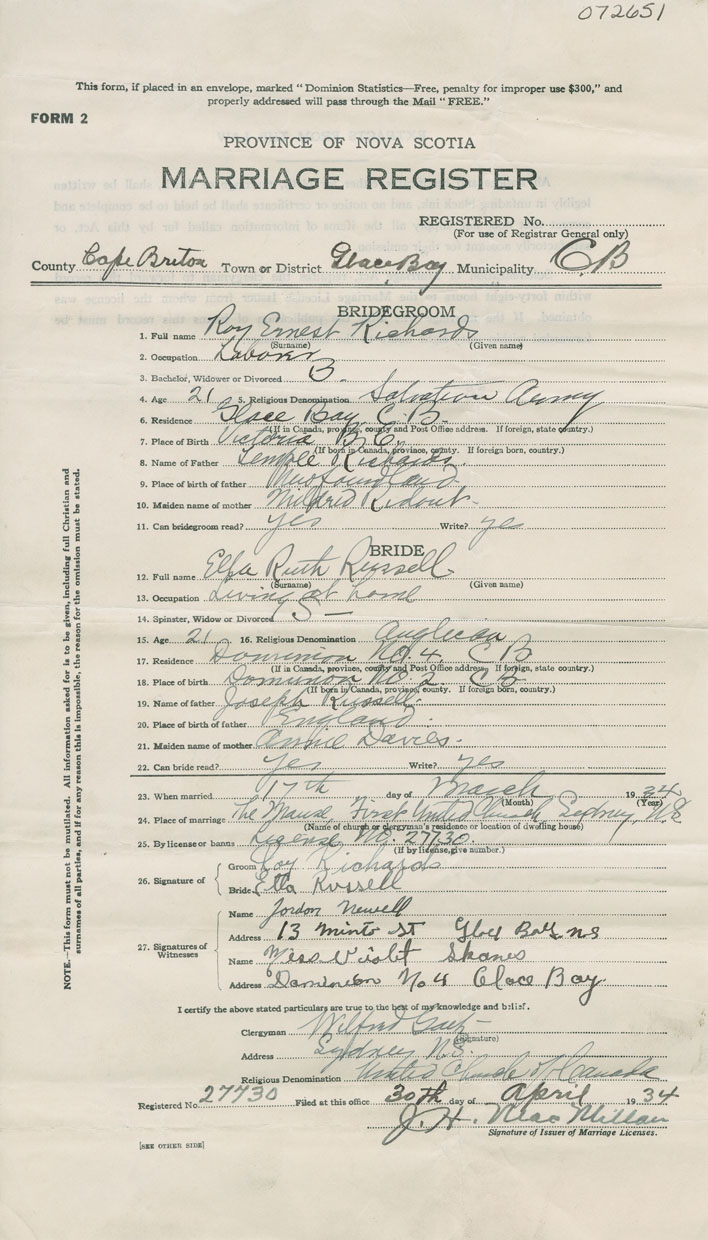 072651
This form, if placed in an envelope, marked "Dominion Statistics—Free, penalty for improper use $300," and
properly addressed will pass through the Mail "FREE."
FORM 2
PROVINCE OF NOVA SCOTIA
MARRIAGE REGISTER
REGISTERED No.
(For use of Registrar General only)
County Cape Breton Town or District Glace Bay Municipality C B
BRIDEGROOM
1. Full name Roy Ernest Richards
(Surname) (Given name)
2. Occupation Laborer
3. Bachelor, Widower or Divorced B.
4. Age 21 5. Religious Denomination Salvation Army
6. Residence Glace Bay C.B.
(If in Canada, province, county and Post Office address. If foreign, state country.)
7. Place of Birth Victoria B.C.
(If born in Canada, province, county. If foreign born, country.)
8. Name of Father Temple Richards
9. Place of birth of father Newfoundland
10. Maiden name of mother Mildred Ridout
11. Can bridegroom read? yes Write? yes
BRIDE
12. Full name Ella Ruth Russell
(Surname) (Given name)
13. Occupation Living at home
14. Spinster, Widow or Divorced S —
15. Age 21 16. Religious Denomination Anglican
17. Residence Dominion No. 4 C B
(If in Canada, provinces, county and Post Office address, If foreign, state country.)
18. Place of birth Dominion No. 2. C B
(If born in Canada, province, county. If foreign born, country.)
19. Name of father Joseph Russell
20. Place of birth of father England
21. Maiden name of mother Annie Davies.
22. Can bride read? yes Write? yes
23. When married 17th day of March 1934
(Month) (Year)
24. Place of marriage The Manse, First United Church, Sydney, N.S.
(Name of church or clergyman's residence or location of dwelling house)
25. By license or banns License No. 27730
(If by license, give number.)
26. Signature of
Groom Roy Richards
Bride Ella Russell
27. Signatures of Witnesses
Name Jordon Newell
Address 13 Minto St Glace Bay N S
Name Miss Violet Skanes
Address Dominion No 4 Glace Bay
I certify the above stated particulars are true to the best of my knowledge and belief.
Clergyman Wilfred Gaetz
(Signature)
Address Sydney N.S.
Religious Denomination United Church of Canada
Registered No. 27730 Filed at this office 30th day of April 1934
J. H. MacMillan
Signature of Issuer of Marriage Licenses.
[SEE OTHER SIDE]
NOTE.—This form must not be mutilated. All information asked for is to be given, including full Christian and
surnames of all parties, and if for any reason this is impossible, the reason for the omission must be stated.